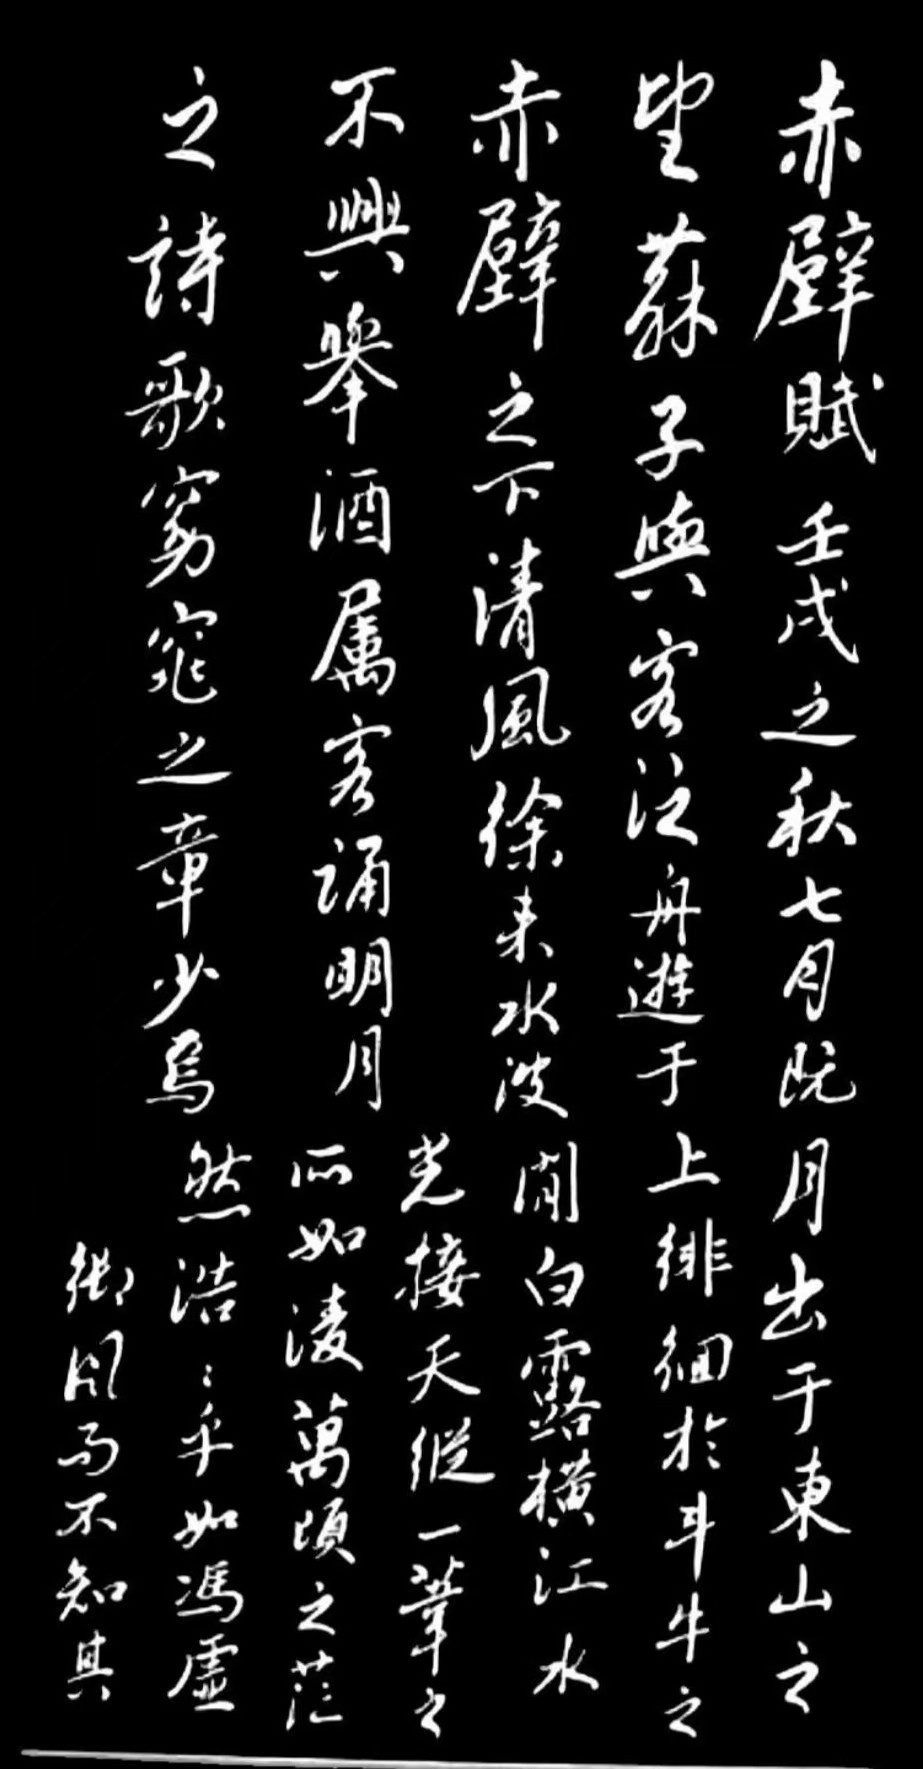 赤壁賦 壬戌之秋七月既
望蘇子與客泛舟遊于
赤壁之下清風徐来水波
不興舉酒属客誦明月
之詩歌窈窕之章少焉
月出于東山之
上徘徊於斗牛之
間白露橫江水
光接天縱一葦之
所如凌萬頃之茫
然浩〻乎如馮虛
御風而不知其